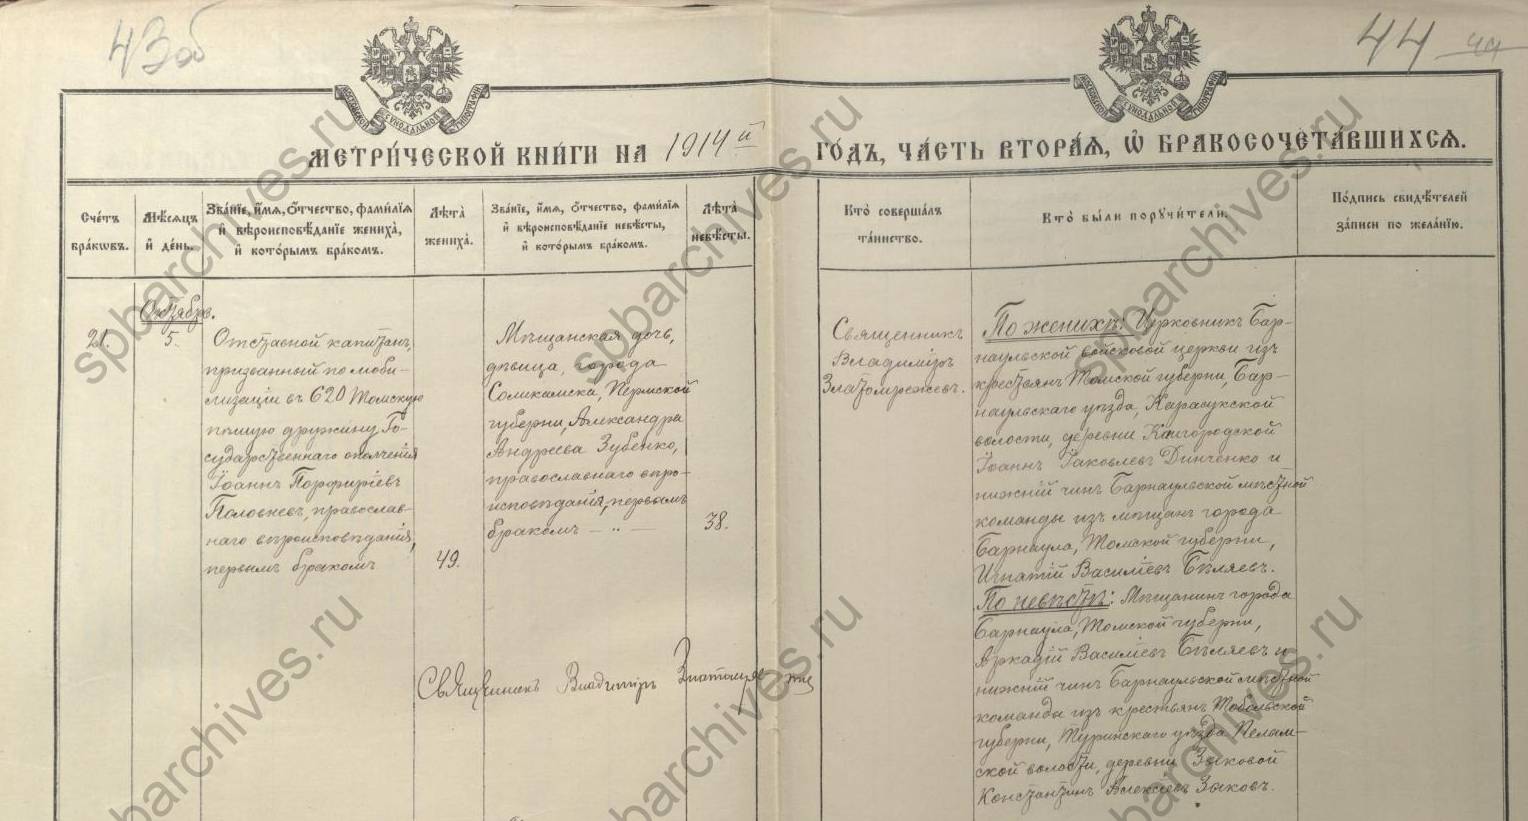 43 об
44
МЕТРИ́ЧЕСКОЙ КНИ́ГИ НА 1914й ГО́ДЪ, ЧА́СТЬ ВТОРА́Я, Ѡ БРАКОСОЧЕТА́ВШИХСЯ.
Сче́тъ бра́кωвъ.
Мѣ́сяцъ и де́нь.
Зва́нїе, и́мя, о́тчество, фами́лїя
и вѣроисповѣ́данїе жениха̀,
и кото́рымъ бра́комъ.
Лѣ́та жениха̀.
Зва́нїе, и́мя, о́тчество, фами́лїя
и вѣроисповѣ́данїе невѣ́сты,
и кото́рымъ бра́комъ.
Лѣ́та невѣ́сты.
Кто̀ соверша́лъ
та́инство.
Кто̀ бы́ли поручи́тели.
По́дпись свидѣ́телей
за́писи по жела́нїю.
21.
Октябрь.
5.
Отставной капитанъ,
призванный по моби-
лизаціи въ 620 Томскую
пѣшую дружину Го-
сударственнаго ополченія
Іоаннъ Порфиріевъ
Половневъ, православ-
наго вѣроисповѣданія,
первымъ бракомъ
49.
Мѣщанская дочь,
дѣвица, города
Соликамска, Пермской
губерніи, Александра
Андреева Зубенко,
православнаго вѣро-
исповѣданія, первымъ
бракомъ — „ —
38.
Священникъ
Владиміръ
Златомрежевъ.
По женихѣ: Церковникъ Бар-
наульской войсковой церкви изъ
крестьянъ Томской губерніи, Бар-
наульскаго уѣзда, Карасукской
волости, деревни
Іоаннъ Іаковлевъ Динченко и
нижній чинъ Барнаульской мѣстной
команды изъ мѣщанъ города
Барнаула, Томской губерніи,
Игнатій Василіевъ Бѣляевъ.
По невѣстѣ: Мѣщанинъ города
Барнаула, Томской губерніи,
Аркадій Василіевъ Бѣляевъ и
нижній чинъ Барнаульской мѣстной
команды изъ крестьянъ Тобольской
губерніи, Туринскаго уѣзда Пелым-
ской волости, деревни Зыковой
Константинъ Алексіевъ Зыковъ.
Священникъ Владиміръ Златомрежевъ
spbarchives.ru
spbarchives.ru
spbarchives.ru
spbarchives.ru
spbarchives.ru
spbarchives.ru